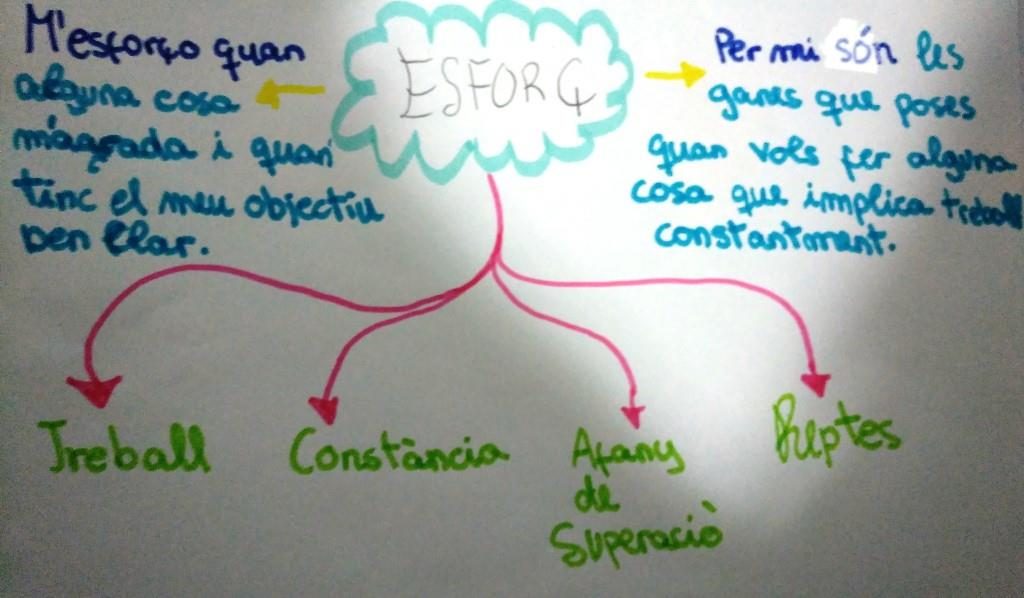 ESFORÇ
M'esforço quan
alguna cosa
m'agrada i quan
tinc el meu objectiu
ben clar.
Per mi són les
ganes que poses
quan vols fer alguna
cosa que implica treball
constantment.
Treball
Constància
Afany
de
Superaciò
Reptes